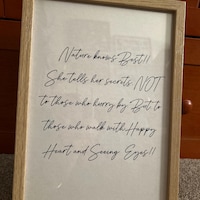 Nature knows Best!!
She tells her secrets NOT
to those who hurry by But to
those who walk with Happy
Heart and Seeing Eyes!!